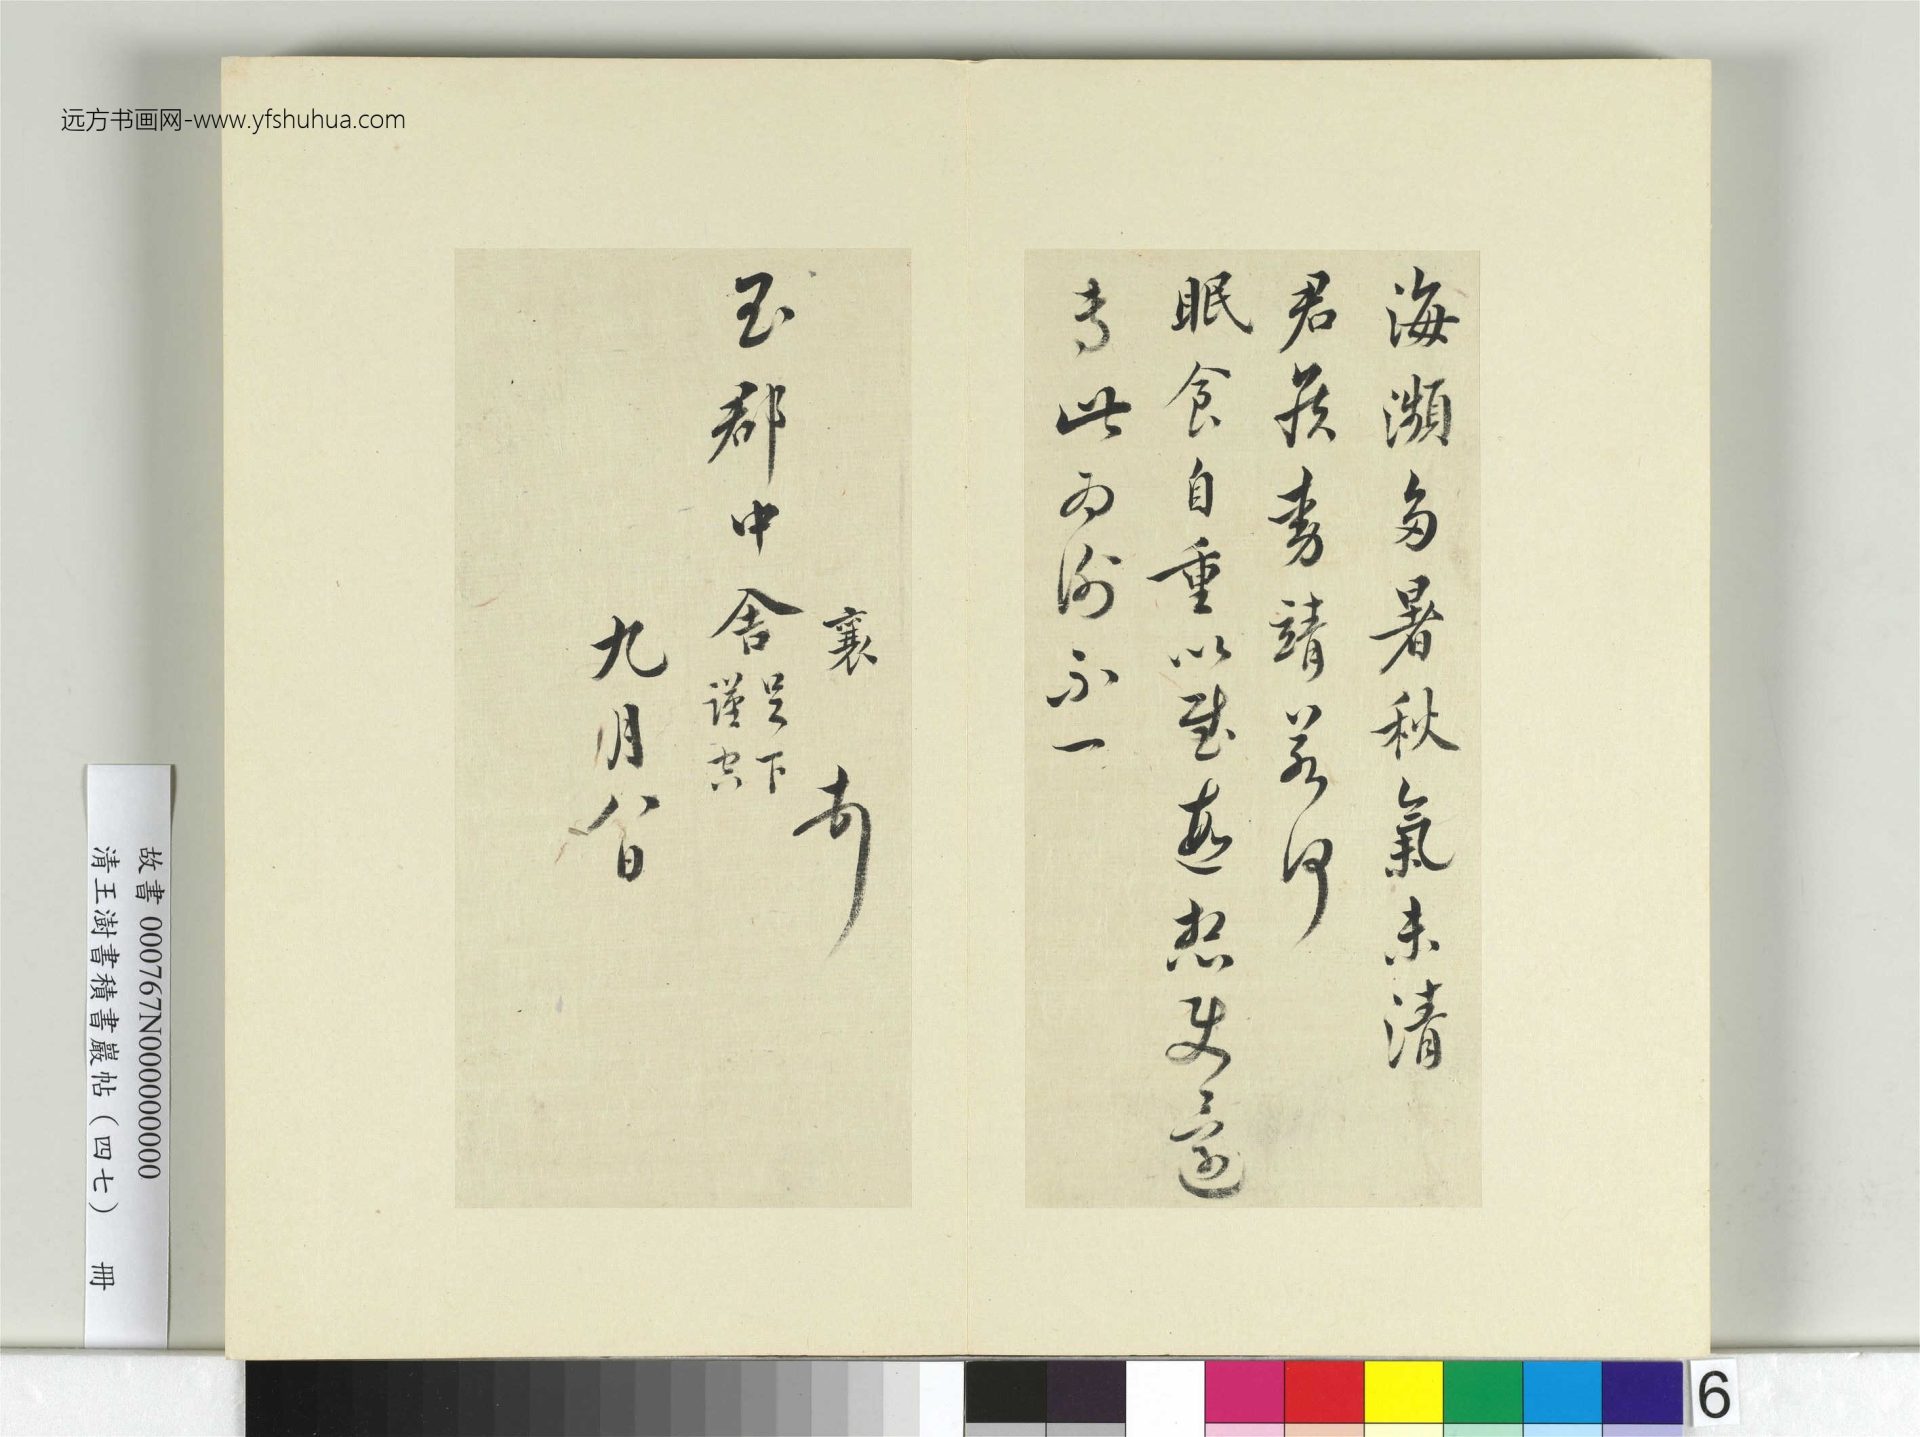 远方书画网-www.yfshuhua.com
海瀕多暑秋氣未清
君矦動靖若何
眠食自重以慰遐想使還
專此為謝不一
襄
玉郡中舍足下謹空
九月八日
故書 000767N000000000
清王澍書積書巖帖（四七） 冊
6